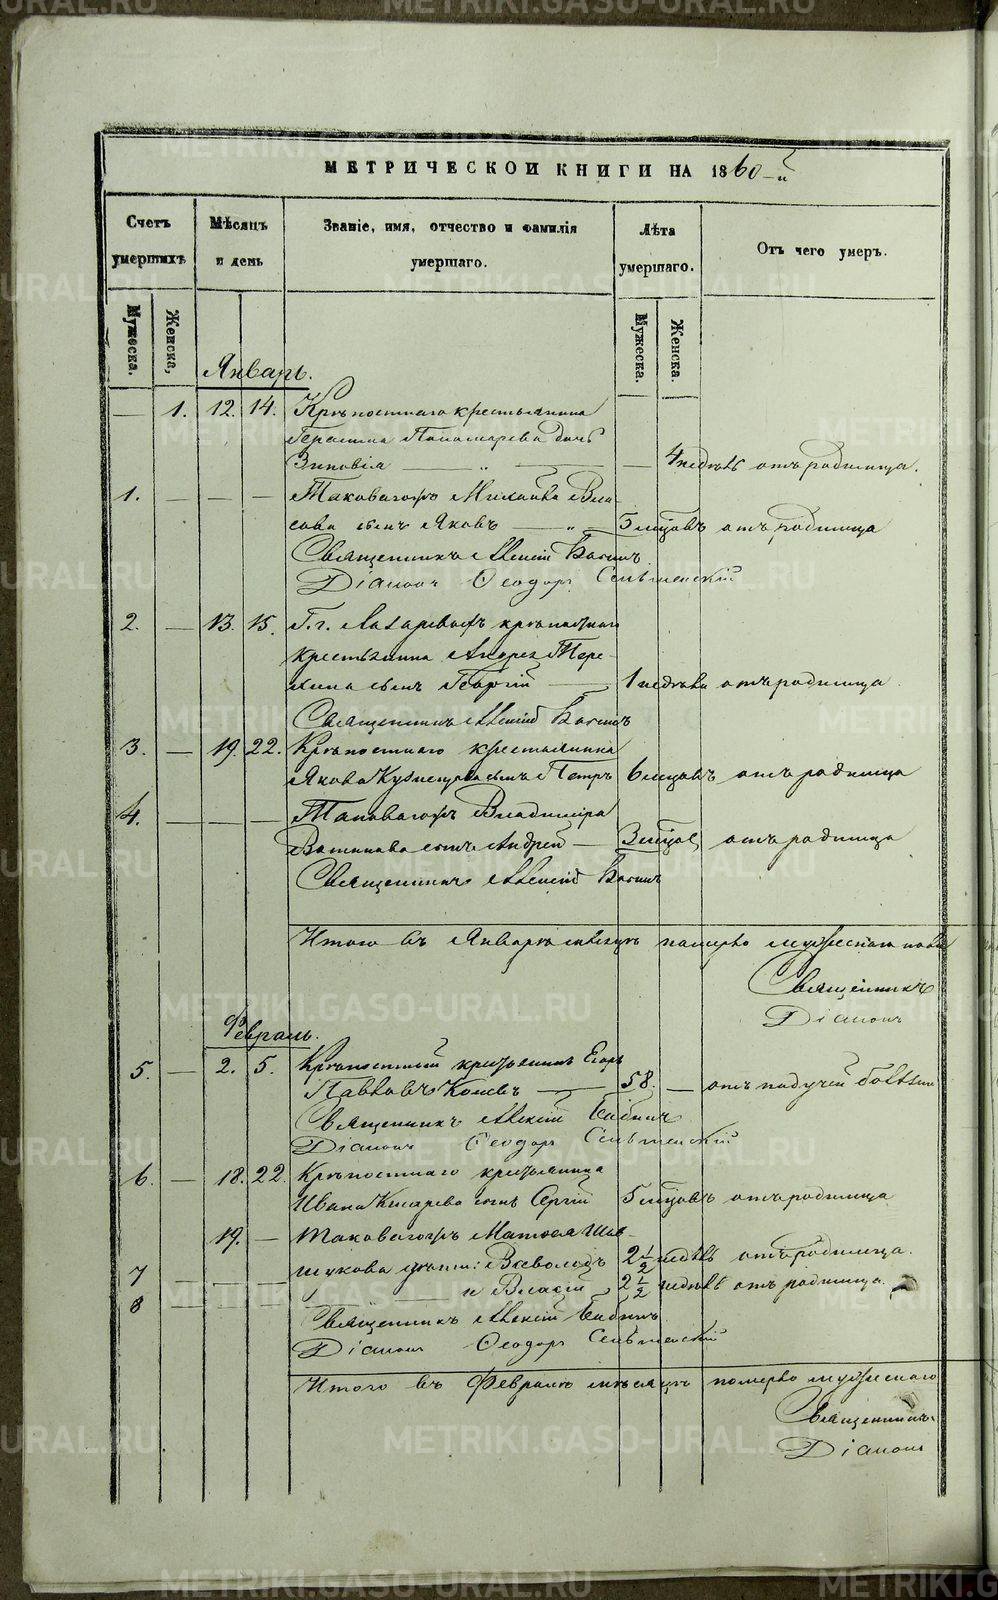 МЕТРИЧЕСКОЙ КНИГИ НА 1860-й
Счетъ умершихъ
Мѣсяцъ и день
Званіе, имя, отчество и фамилія умершаго.
Лѣта умершаго.
Отъ чего умеръ.
Мужеска.
Женска,
Мужеска.
Женска.
Январь.
— 1. 12. 14. Крѣпостнаго крестьянина
Герасима Пономарева дочь
Зиновія — „ — — 4 недѣль отъ родимца.
1. — — — Таковагожъ Михайла Вла-
сова сынъ Яковъ — „ — 5 мѣсцовъ отъ родимца
Священникъ Алексій
Діаконъ Ѳеодоръ
2. — 13. 15. Г. г. Лазаревыхъ крѣпостнаго
крестьянина Андрея Тере-
хина сынъ Георгій — 1 недѣли отъ родимца
Священникъ Алексій
3. — 19. 22. Крѣпостнаго крестьянина
Якова Кузнецова сынъ Петръ 6 мѣсцовъ отъ родимца
4. — — — Таковагожъ Владиміра
сынъ Андрей — 3 мѣсцов, отъ родимца
Священникъ Алексій
Итого въ Январѣ мѣсяцѣ померло мужескаго пола
Священникъ
Діаконъ
Февраль.
5. — 2. 5. Крѣпостный крестьянинъ Егоръ
Павловъ — 58. — отъ падучей болѣзни
Священникъ Алексій
Діаконъ Ѳеодоръ
6. — 18. 22. Крѣпостнаго крестьянина
Ивана сынъ Сергій 5 мѣсцовъ отъ родимца
19. — Таковагожъ Матѳея Шав-
шукова дѣти: Всеволодъ 2 1/2 недѣль отъ родимца.
7 — — —
8 — — — и Власій 2 1/2 недѣль отъ родимца.
Священникъ Алексій
Діаконъ Ѳеодоръ
Итого въ Февралѣ мѣсяцѣ померло мужескаго
Священникъ
Діаконъ
METRIKI.GASO-URAL.RU